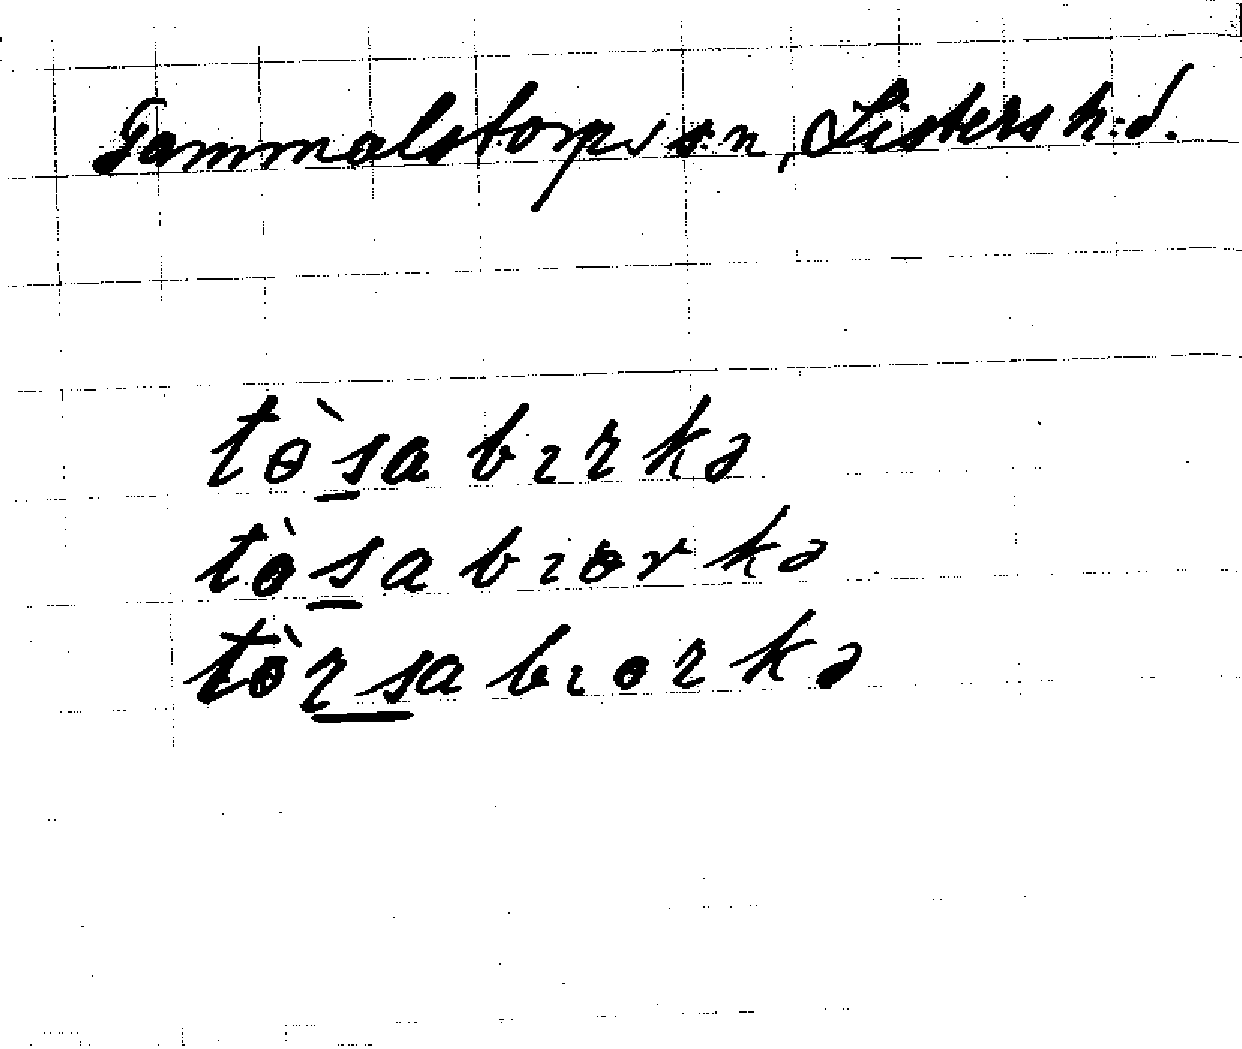 Gammalstorps sn, Listers h:d.
tɵ̀sabɪrkə
tɵ̀sabɪɵrkə
tɵ̀rsabɪɵrkə